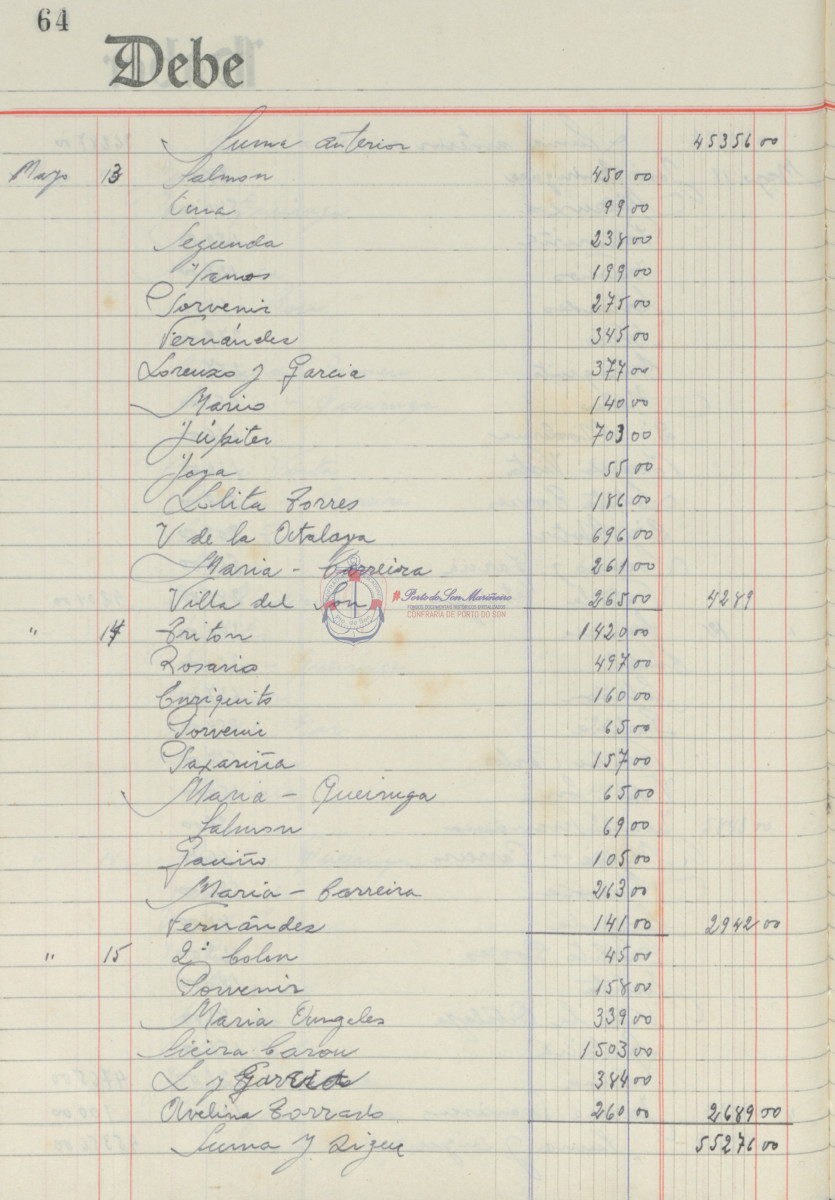 64
Debe
Suma anterior 45356 00
Mayo 13 Salmon 450 00
Una 99 00
Segunda 238 00
Vamos 199 00
Porvenir 275 00
Fernández 345 00
Lorenzo y Garcia 377 00
Mario 140 00
Júpiter 703 00
Joya 55 00
Lolita Torres 186 00
V de la Atalaya 696 00
Maria - Carreira 261 00
Villa del Son 265 00 4289
Porto do Son Mariñeiro
FONDOS DOCUMENTAIS HISTÓRICOS DIXITALIZADOS
CONFRARÍA DE PORTO DO SON
" 14 Triton 1420 00
Rosario 497 00
Enriquito 160 00
Porvenir 65 00
Paxariña 157 00
Maria - Queiruga 65 00
Salmon 69 00
Gaviño 105 00
Maria - Carreira 263 00
Fernández 141 00 2942 00
" 15 2º Colon 45 00
Porvenir 158 00
Maria Angeles 339 00
Sieira Carou 1503 00
L y Garcia 384 00
Avelina Torrado 260 00 2689 00
Suma y Sigue 55276 00